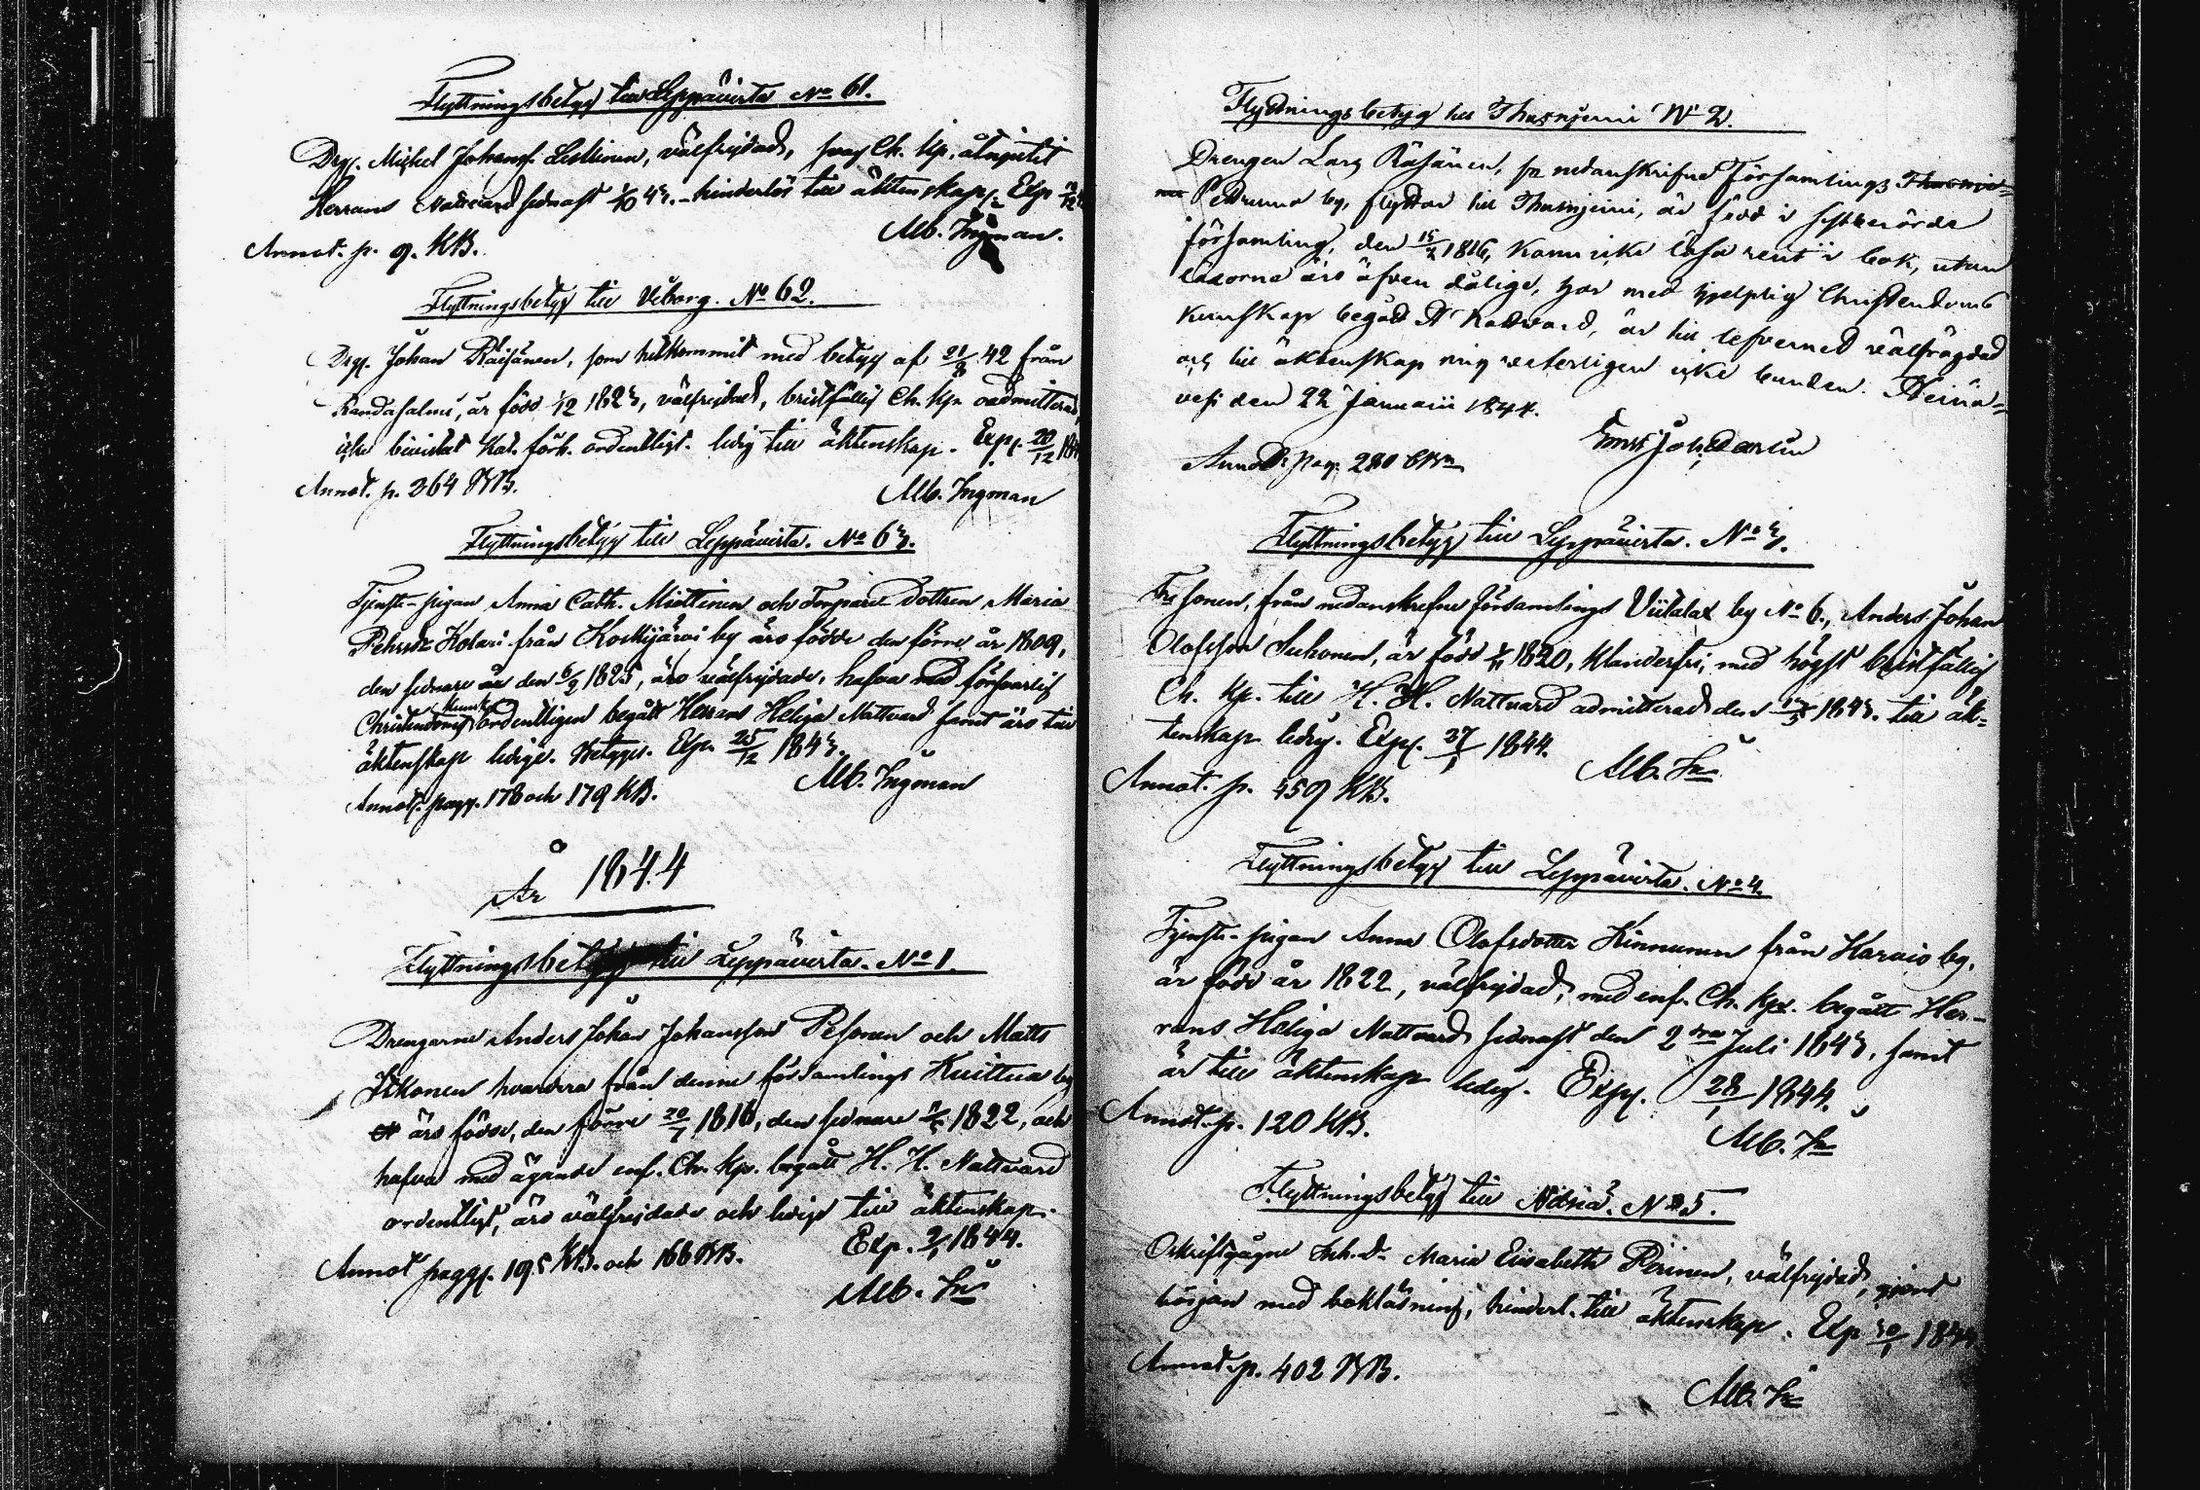 Flyttningsbetyg till Leppävirta No 61.
Drg. Michel Johansf. Leskinen, välfrejdad, svag Ch. kp, åtnjutit
Herrans Nattvard sednast 1/10 43. - hinderlös till äktenskap. Exp
Alb. Ingman.
Annot. p. 9. KB.
Flyttningsbetyg till Viborg. No 62.
Drg. Johan Räisänen, som hitkommit med betyg af 21/8 42 från
Randasalmi, är född 1/12 1823, välfrejdad, bristfällig Ch. kp. oadmitterad,
icke bivistat Kat. förh. ordentligt. ledig till äktenskap. Exp. 20/12
Annot. p. 364 KB.
Alb. Ingman
Flyttningsbetyg till Leppävirta. No 63.
Tjenste-pigan Anna Cath. Miettinen och Torpare-dottren Maria
Pehrsdr Kolari från Koskijärvi by äro födde den förre år 1809,
den sednare år den 6/2 1825, äro välfrejdade, hafva med försvarlig
Christendoms kunskap ordentligen begått Herrans Heliga Nattvard samt äro till
äktenskap lediga. Betygas. Exp. 25/12 1843.
Alb. Ingman
Annot. pagg. 178 och 179 KB.
År 1844
Flyttningsbetyg till Leppävirta. No 1.
Drengarne Anders Johan Johansson Pesonen och Matts
Itkonen hvardera från denne församlings Kuittua by
äro födde, den förre 20/7 1816, den sednare 1822, och
hafva med ägande enf. Ch. kp. begått H. H. Nattvard
ordentligt, äro välfrejdade och lediga till äktenskap.
Exp. 2/1 1844.
Annot pagg. 195 KB. och 166 KB.
Alb. In
Flyttningsbetyg till Thusnjemi No 2.
Drengen Lars Räsänen, fr nedanskrifne Församlings
Petruma by, flyttar till Thusnjemi, är född i sistberörde
församling, den 15/2 1816, kann icke läsa rent i bok, utan
läxorne äro äfven dålige, har med hjelplig Christendoms
kunskap begådt Nattvard, är till lefvernet välfrägdad
och till äktenskap mig veterligen icke bunden. Heinä-
vesi den 22 Januarii 1844.
Ernst Joh.
Annot. pag. 280
Flyttningsbetyg till Leppävirta. No 3.
Tr sonen, från nedanskrefne församlings Viitalax by No 6., Anders Johan
Olofsson Suhonen, är född 1820, klanderfri, med högst bristfällig
Ch. kp. till H. H. Nattvard admitterad den 1843. till äk-
tenskap ledig. Exp. 27/1 1844.
Alb. In
Annot. p. 459 KB.
Flyttningsbetyg till Leppävirta. No 4.
Tjenste-pigan Anna Olofsdotter Kinnunen från Karvio by.
är född år 1822, välfrejdad, med enf. Ch. kp. begått Her-
rans Heliga Nattvard sednast den 2dra Juli 1843, samt
är till äktenskap ledig. Exp. 28/1 1844.
Annot. p. 120 KB.
Alb. In
Flyttningsbetyg till Nilsiä. No 5.
Oskriftgångne Inh. dr Maria Elisabetha Piirinen, välfrejdad, gjort
början med bokläsning, hinderl. till äktenskap. Exp 30/1 1844
Annot. p. 402 KB.
Alb. In